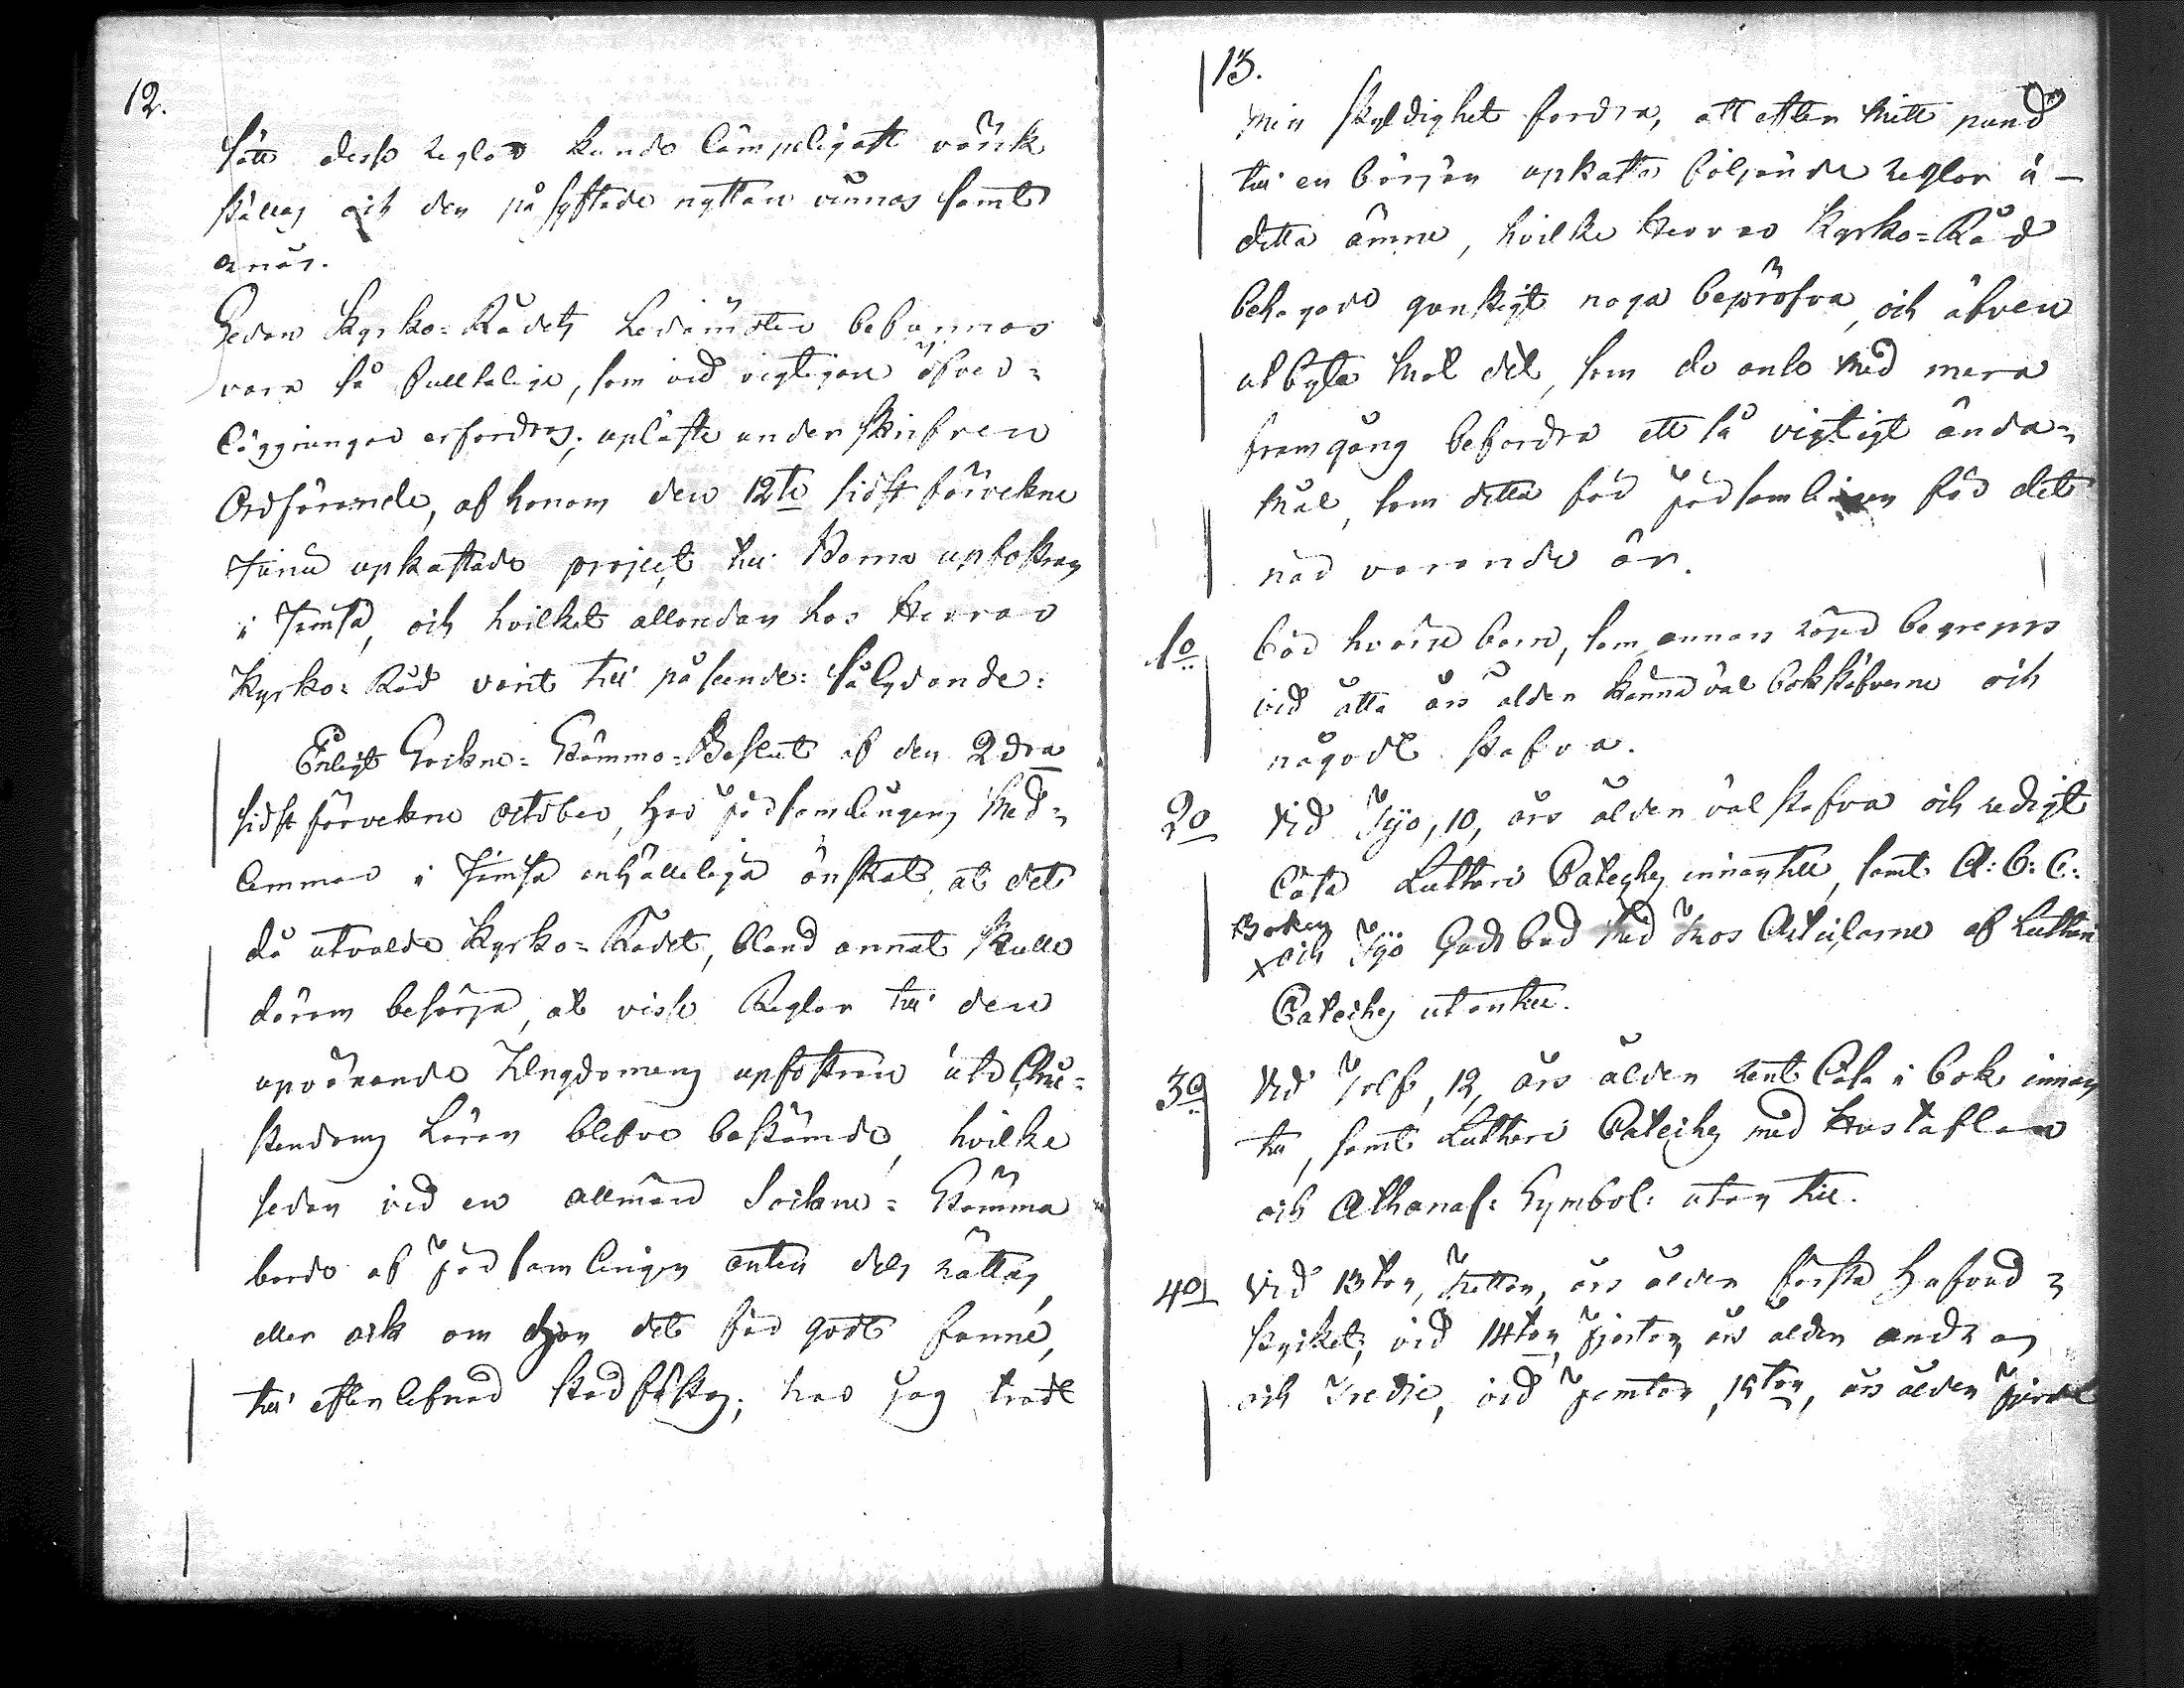 12.
sätt desse reglor kunde lämpeligast värk
ställas och den på syftade nyttan vinnas samt
ernås.
Sedan Kyrko=Rådets Ledamöter befunnos
vara så fulltalige, som vid vigtigare öfver=
läggningar erfordras; uplästes underskrifven
Ordförande, af honom den 12te sidst förvekne
Junii upkastade project til Barna upfostran
i Jemsä, och hvilket allondan hos Herrar
Kyrko=Råd varit til påseende: så lydande:
Enligt Sockne=Stämmo=Beslut af den 2dra
sidst förvekne October, har Församlingens Med=
lemmar i Jemsä enhälleligen önskat, at det
då utvalde Kyrko=Rådet, bland annat skulle
därom besörja, at visse Reglor til den
upväxande Ungdomens upfostran uti Chri=
stendoms Läran blefve bestämde, hvilke
sedan vid en allmän Sockne=Stämma
borde af Församlingen antingen rättas,
eller ock om den det för godt funne,
til efterlefnad stadfästas; har jag trodt
13.
min skyldighet fordra, att efter mitt pund
til en början upkasta följande reglor i
detta ämne, hvilke Herrar Kyrko=Råd
behagade gunstigt noga bepröfva, och äfven
utbyta mot det, som de anse med mera
framgång befordra ett så vigtigt ända=
mål, som detta för Församlingen för det
när varande är.
1o Bör hvarje barn, som annars röjer begrepp,
vid åtta års ålder känna väl bokstäfverne och
någodt stafva.
2o Vid Tijo, 10, års ålder väl stafva och redigt
läsa Lutheri Cateches innantil, samt A: B: C:
Boken
x och Tijo Guds bud med Tros Articlarne af Lutheri
Cateches utantil.
3o Vid Tolf, 12, års ålder rent läsa i bok innan
til, samt Lutheri Cateches med Hustaflan
och Athanas: Symbol: utantil.
4o Vid 13ton, Tretton, års ålder första Hufvud=
stycket; vid 14ton, Fjorton, års ålder andra
och Tredie, vid Femton, 15ton, års ålder Fjerde